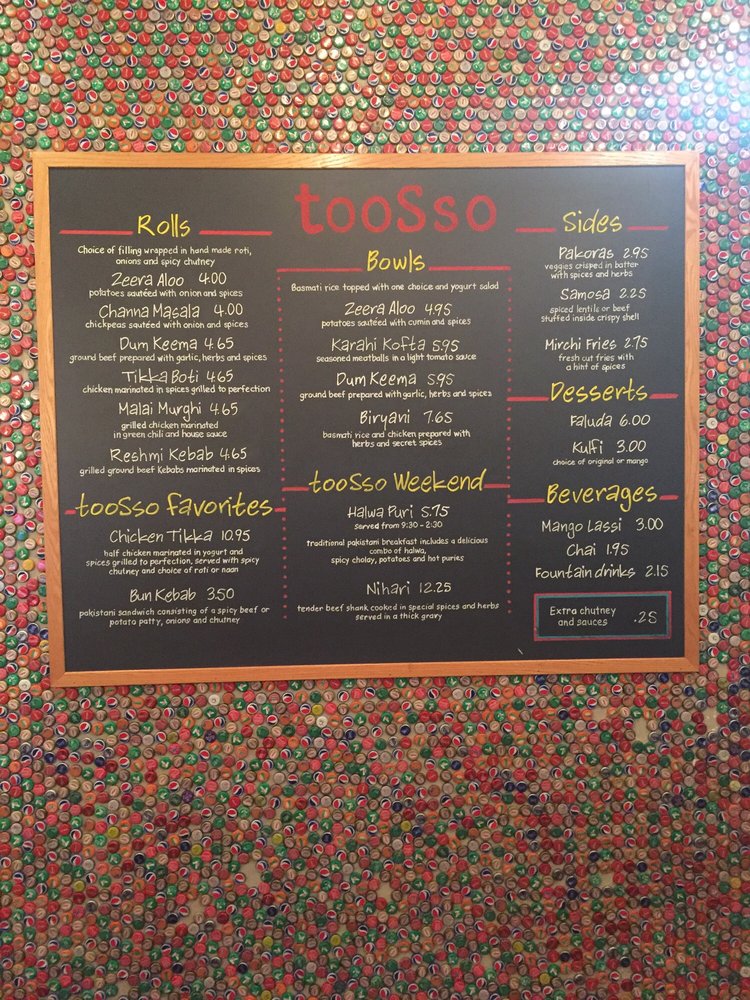 tooSso
Rolls
Choice of filling wrapped in hand made roti,
onions and spicy chutney
Zeera Aloo 4.00
potatoes sautéed with onion and spices
Channa Masala 4.00
chickpeas sautéed with onion and spices
Dum Keema 4.65
ground beef prepared with garlic, herbs and spices
Tikka Boti 4.65
chicken marinated in spices grilled to perfection
Malai Murghi 4.65
grilled chicken marinated
in green chili and house sauce
Reshmi Kebab 4.65
grilled ground beef Kebabs marinated in spices
tooSso favorites
Chicken Tikka 10.95
half chicken marinated in yogurt and
spices grilled to perfection, served with spicy
chutney and choice of roti or naan
Bun Kebab 3.50
pakistani sandwich consisting of a spicy beef or
potato patty, onions and chutney
Bowls
Basmati rice topped with one choice and yogurt salad
Zeera Aloo 4.95
potatoes sautéed with cumin and spices
Karahi Kofta 5.95
seasoned meatballs in a light tomato sauce
Dum Keema 5.95
ground beef prepared with garlic, herbs and spices
Biryani 7.65
basmati rice and chicken prepared with
herbs and secret spices
tooSso Weekend
Halwa Puri 5.75
served from 9:30 - 2:30
traditional pakistani breakfast includes a delicious
combo of halwa,
spicy cholay, potatoes and hot puries
Nihari 12.25
tender beef shank cooked in special spices and herbs
served in a thick gravy
Sides
Pakoras 2.95
veggies crisped in batter
with spices and herbs
Samosa 2.25
spiced lentils or beef
stuffed inside crispy shell
Mirchi Fries 2.75
fresh cut fries with
a hint of spices
Desserts
Faluda 6.00
Kulfi 3.00
choice of original or mango
Beverages
Mango Lassi 3.00
Chai 1.95
Fountain drinks 2.15
Extra chutney
and sauces .25